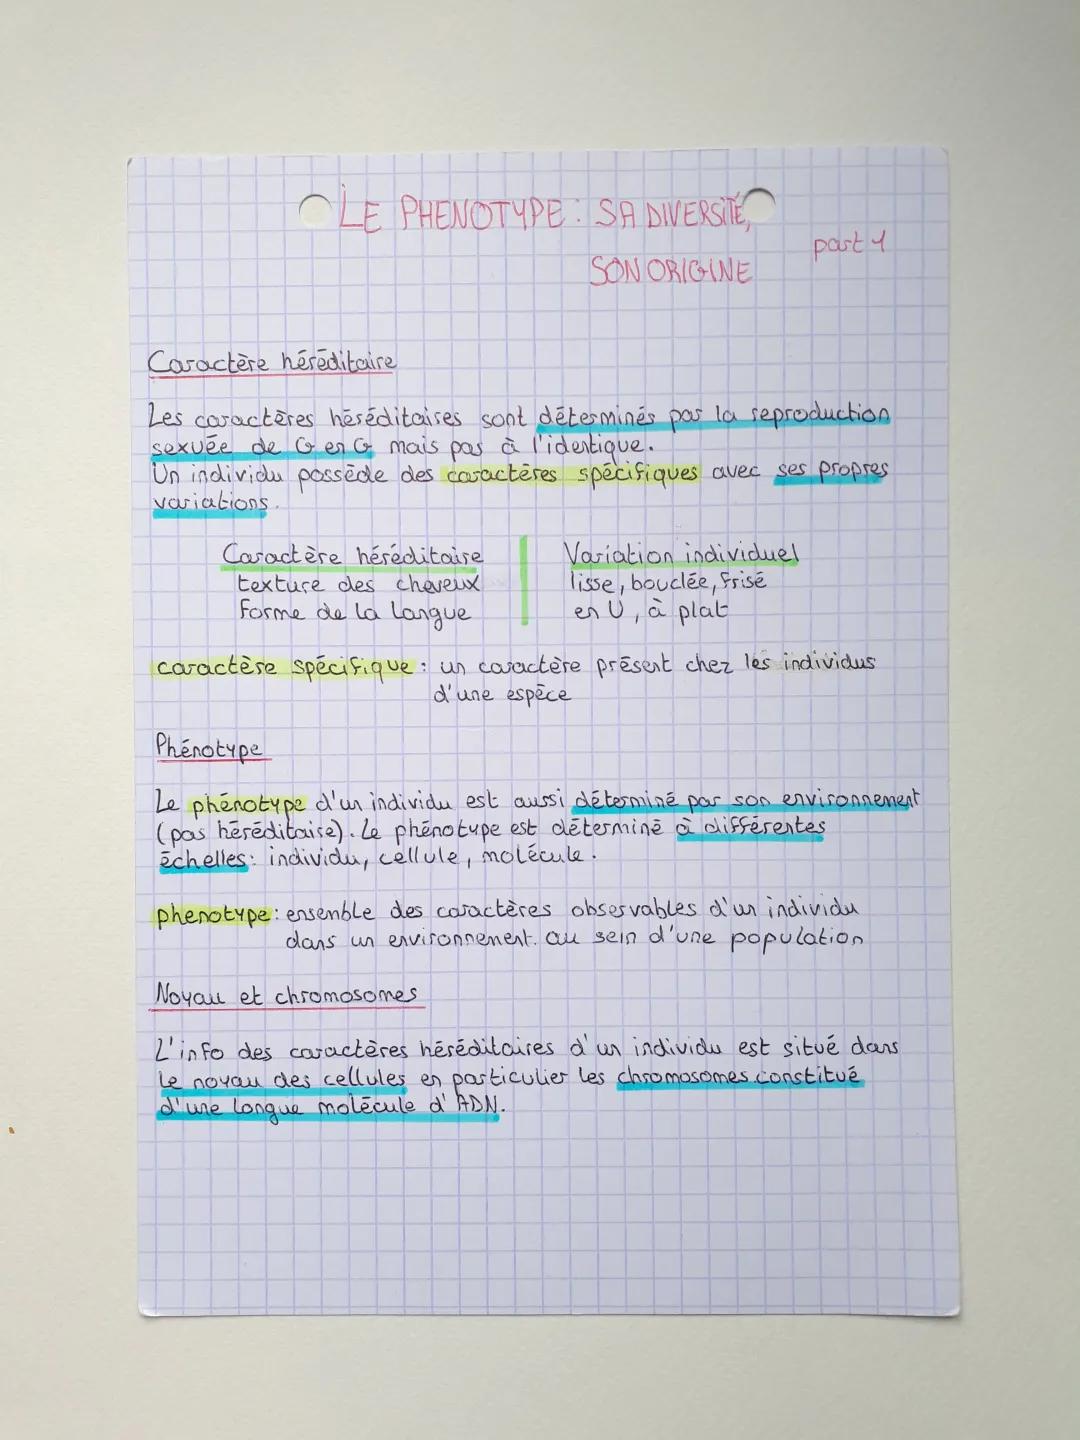 LE PHENOTYPE : SA DIVERSITÉ,
SON ORIGINE
part 1
Caractère héréditaire
Les caractères héréditaires sont déterminés par la reproduction
sexuée de G en G mais pas à l'identique.
Un individu possède des caractères spécifiques avec ses propres
variations.
Caractère héréditaire
texture des cheveux
forme de la langue
Variation individuel
lisse, bouclée, frisé
en U, à plat
caractère spécifique : un caractère présent chez les individus
d'une espèce
Phénotype
Le phénotype d'un individu est aussi déterminé par son environnement
(pas héréditaire). Le phénotype est déterminé à différentes
échelles : individu, cellule, molécule.
phenotype : ensemble des caractères observables d'un individu
dans un environnement. au sein d'une population
Noyau et chromosomes
L'info des caractères héréditaires d'un individu est situé dans
le noyau des cellules en particulier les chromosomes constitué
d'une longue molécule d'ADN.